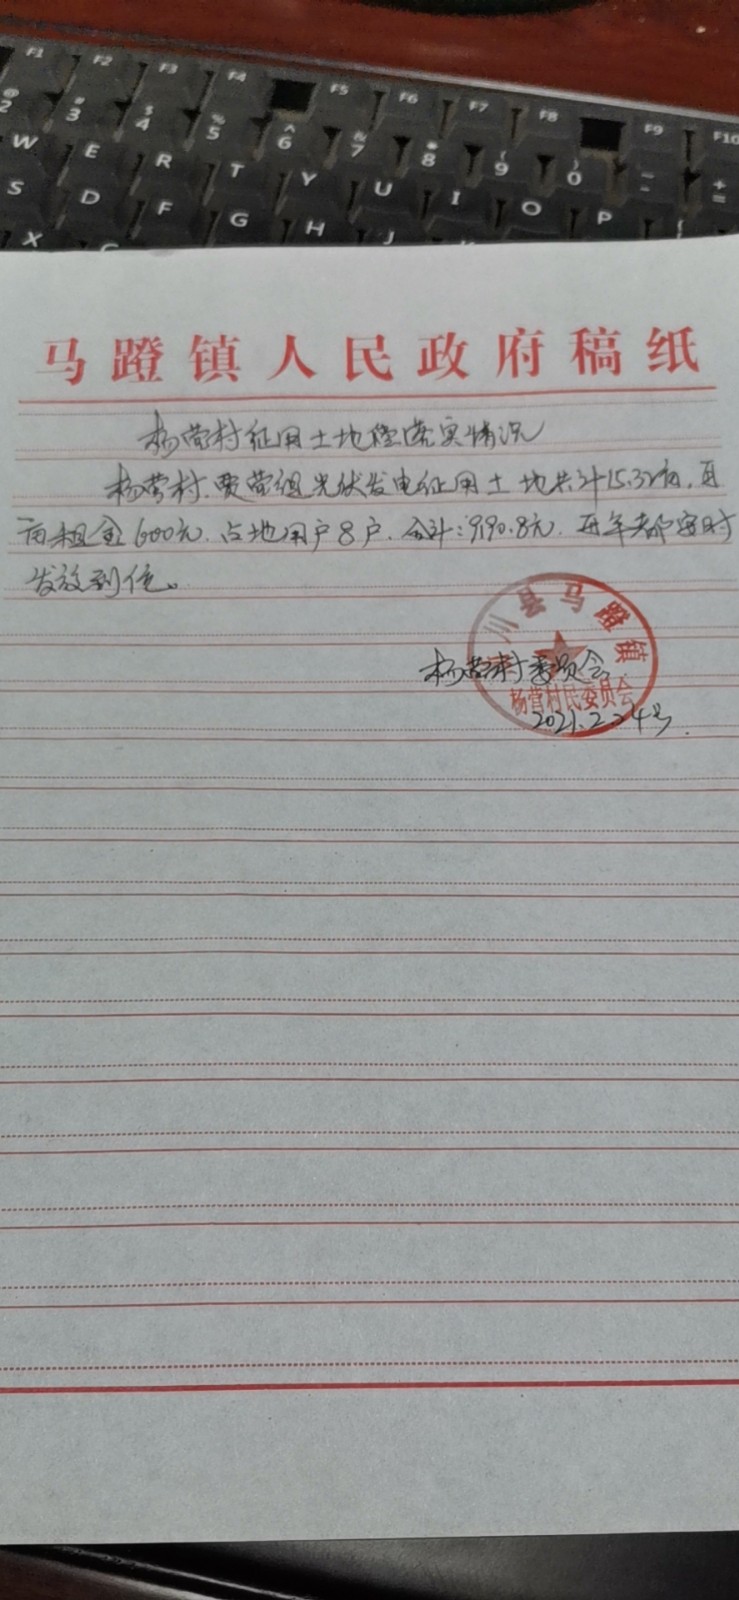 F1 F2 F3 F4 F5 F6 F7 F8 F9 F10
@ 2 # 3 $ 4 % 5 ^ 6 & 7 * 8 ( 9 ) 0 _ - + =
W E R T Y U I O P {
S D F G H J
X C
马蹬镇人民政府稿纸
杨营村征用土地偿落实情况
杨营村、贾营组光伏发电征用土地共计15.32亩,每
亩租金600元.占地用户8户.合计:9190.8元.每年都按时
发放到位。
川县马蹬镇
杨营村委员会
杨营村民委员会
2021.2.24号.